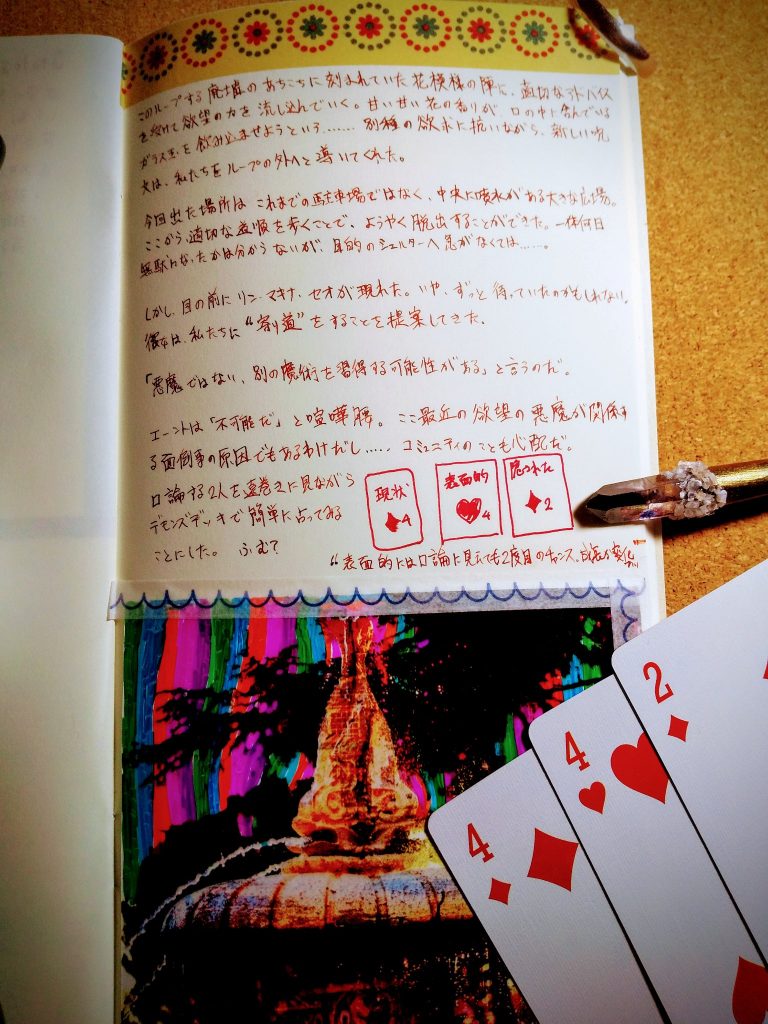 このループする廃墟のあちこちに刻まれていた花模様の陣に、適切なアドバイス
を受けて欲望の力を流し込んでいく。甘い甘い花の香りが、口の中に含んでいる
ガラス玉を飲み込ませようという……別種の欲求に抗いながら、新しい呪
文は、私たちをループの外へと導いてくれた。
今回出た場所はこれまでの駐車場ではなく、中央に噴水がある大きな広場。
ここから適切な道順を歩くことで、ようやく脱出することができた。一体何日
無駄になったかは分からないが、目的のシェルターへ急がなくては……。
しかし、目の前にリン・マキナ・セオが現れた。いや、ずっと待っていたのかもしれない。
彼女は、私たちに“寄り道”をすることを提案してきた。
「悪魔ではない、別の魔術を習得する可能性がある」と言うのだ。
エーントは「不可能だ」と喧嘩腰。ここ最近の欲望の悪魔が関係す
る面倒事の原因でもあるわけだし……コミュニティのことも心配だ。
口論する2人を遠巻きに見ながら
デモンズデッキで簡単に占ってみる
ことにした。ふむ?
現状
♦4
表面的
♥4
隠された
♦2
“表面的には口論に見えても2度目のチャンス。
4
4
2